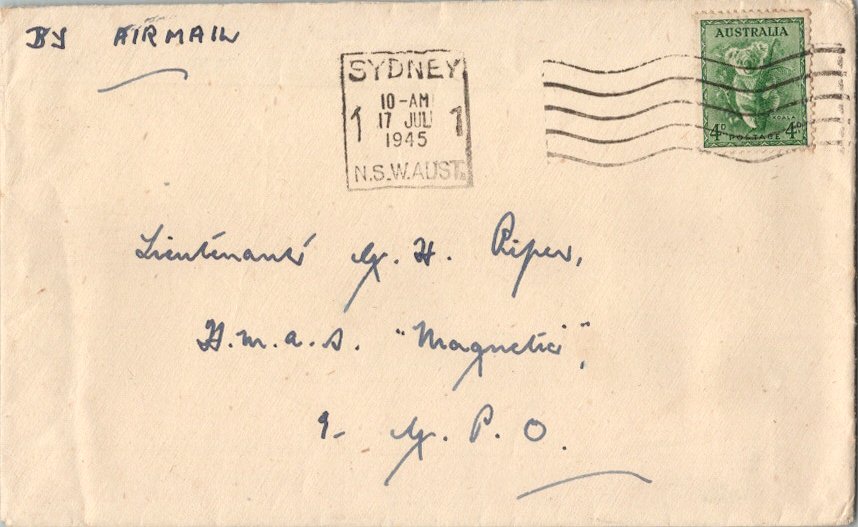 BY AIRMAIL
SYDNEY
10-AM
1 17 JUL 1
1945
N.S.W. AUST.
AUSTRALIA
KOALA
4D POSTAGE 4D
Lieutenant G. H. Piper,
H.M.A.S. "Magnetic",
G. P. O.